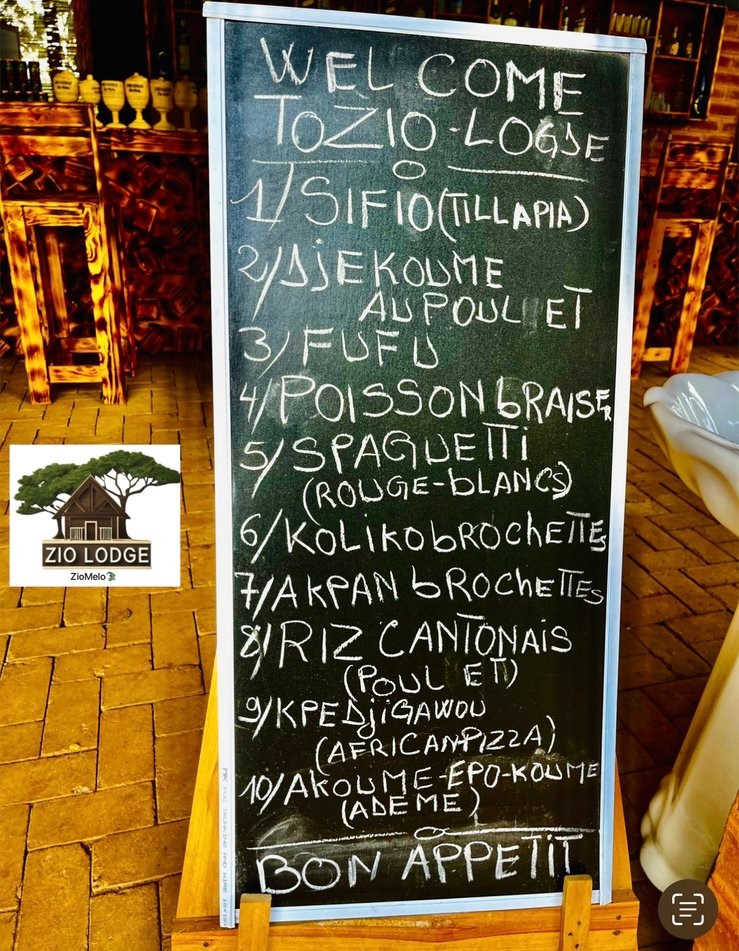 WELCOME
TOZIO-LOGDE
1/SIFIO(TILLAPIA)
2/DJEKOUME
AU POULET
3/FUFU
4/POISSON bRAISER
5/SPAGUETTi
(ROUGE-bLANCS)
6/KOLiKO bROCHETTES
7/AKPAN bROCHETTES
8/RIZ CANTONAIS
(POULET)
9/KPEDjiGAWOU
(AFRICAN-PIZZA)
10/AKOUME-EPO-KOUME
(ADEME)
BON APPETIT
ZIO LODGE
ZioMelo